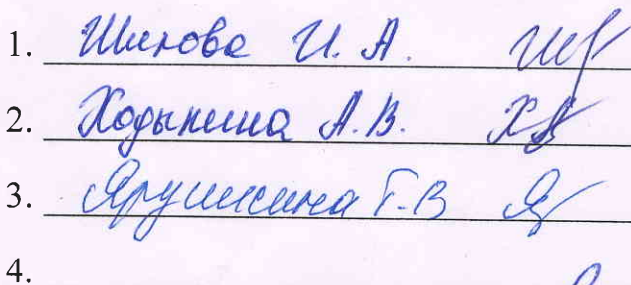 1. Шилова И. А.
2. Ходыкина А. В.
3. Ярушкина Г. В
4.